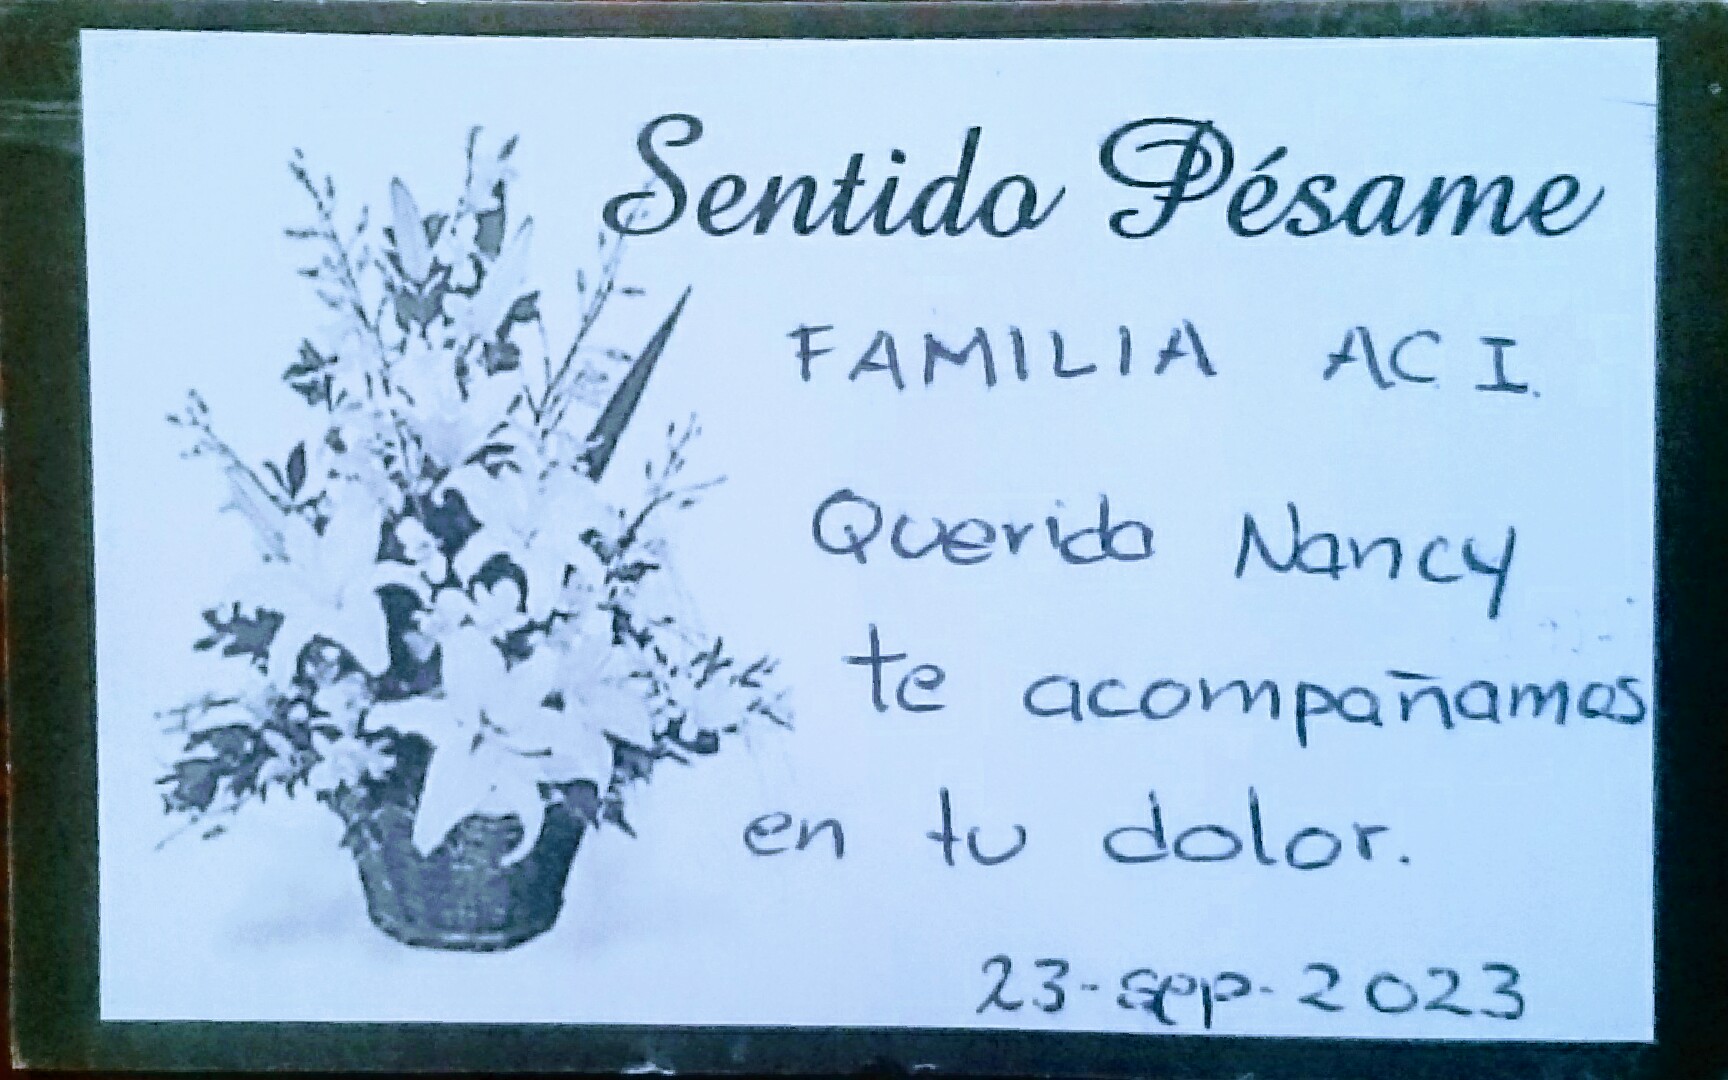 Sentido Pésame
FAMILIA ACI.
Querida Nancy
te acompañamos
en tu dolor.
23-sep-2023